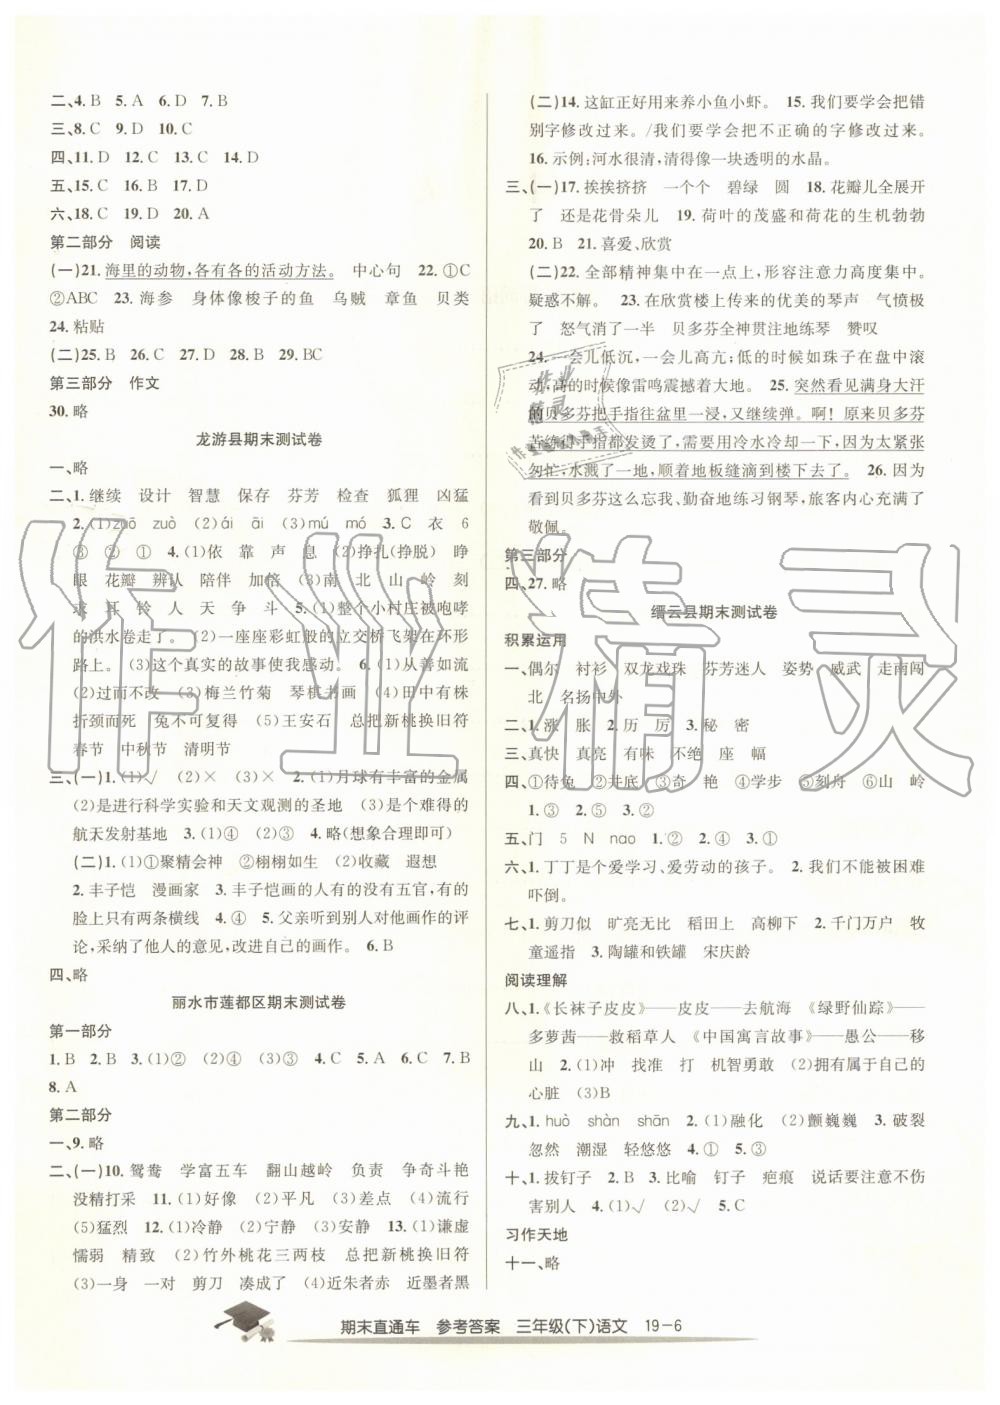 二、4. B　5. A　6. D　7. B
三、8. C　9. D　10. C
四、11. D　12. C　13. C　14. D
五、15. C　16. D　17. C
六、18. C　19. D　20. A
第二部分　阅读
(一)21. 海里的动物,各有各的活动方法。　中心句　22. ①C
②ABC　23. 海参　身体像梭子的鱼　乌贼　章鱼　贝类
24. 粘贴
(二)25. B　26. C　27. D　28. B　29. BC
第三部分　作文
30. 略
龙游县期末测试卷
一、略
二、1. 继续　设计　智慧　保存　芬芳　检查　狐狸　凶猛
2. (1)zuō　zuò　(2)ái　āi　(3)mú　mó　3. C　衣　6
③　②　①　4. (1)依　靠　声　息　(2)挣扎(挣脱)　睁
眼　花瓣　辨认　陪伴　加倍　(3)南　北　山　岭　刻
录　耳　铃　人　天　争　斗　5. (1)整个小村庄被咆哮
的洪水卷走了。　(2)一座座彩虹般的立交桥飞架在环形
路上。　(3)这个真实的故事使我感动。　6. (1)从善如流
(2)过而不改　(3)梅兰竹菊　琴棋书画　(4)田中有株
折颈而死　兔不可复得　(5)王安石　总把新桃换旧符
春节　中秋节　清明节
三、(一)1. (1)√　(2)×　(3)×　2. (1)月球有丰富的金属
(2)是进行科学实验和天文观测的圣地　(3)是个难得的
航天发射基地　3. (1)④　(2)③　4. 略(想象合理即可)
(二)1. (1)①聚精会神　②栩栩如生　(2)收藏　遐想
2. 丰子恺　漫画家　3. 丰子恺画的人有的没有五官,有的
脸上只有两条横线　4. ④　5. 父亲听到别人对他画作的评
论,采纳了他人的意见,改进自己的画作。　6. B
四、略
丽水市莲都区期末测试卷
第一部分
1. B　2. B　3. (1)②　(2)④　(3)③　4. C　5. A　6. C　7. B
8. A
第二部分
一、9. 略
二、(一)10. 鸳鸯　学富五车　翻山越岭　负责　争奇斗艳
没精打采　11. (1)好像　(2)平凡　(3)差点　(4)流行
(5)猛烈　12. (1)冷静　(2)宁静　(3)安静　13. (1)谦虚
懦弱　精致　(2)竹外桃花三两枝　总把新桃换旧符
(3)一身　一对　剪刀　凑成了　(4)近朱者赤　近墨者黑
(二)14. 这缸正好用来养小鱼小虾。　15. 我们要学会把错
别字修改过来。/我们要学会把不正确的字修改过来。
16. 示例:河水很清,清得像一块透明的水晶。
三、(一)17. 挨挨挤挤　一个个　碧绿　圆　18. 花瓣儿全展开
了　还是花骨朵儿　19. 荷叶的茂盛和荷花的生机勃勃
20. B　21. 喜爱、欣赏
(二)22. 全部精神集中在一点上,形容注意力高度集中。
疑惑不解。　23. 在欣赏楼上传来的优美的琴声　气愤极
了　怒气消了一半　贝多芬全神贯注地练琴　赞叹
24. 一会儿低沉,一会儿高亢;低的时候如珠子在盘中滚
动,高的时候像雷鸣震撼着大地。　25. 突然看见满身大汗
的贝多芬把手指往盆里一浸,又继续弹。啊!原来贝多芬
苦练得手指都发烫了,需要用冷水冷却一下,因为太紧张
匆忙,水溅了一地,顺着地板缝滴到楼下去了。　26. 因为
看到贝多芬这么忘我、勤奋地练习钢琴,旅客内心充满了
敬佩。
第三部分
四、27. 略
缙云县期末测试卷
积累运用
一、偶尔　衬衫　双龙戏珠　芬芳迷人　姿势　威武　走南闯
北　名扬中外
二、1. 涨　胀　2. 历　厉　3. 秘　密
三、真快　真亮　有味　不绝　座　幅
四、①待兔　②井底　③奇　艳　④学步　⑤刻舟　⑥山　岭
1. ③　2. ⑤　3. ②
五、门　5　N　nao　1. ②　2. ④　3. ①
六、1. 丁丁是个爱学习、爱劳动的孩子。　2. 我们不能被困难
吓倒。
七、1. 剪刀似　旷亮无比　稻田上　高柳下　2. 千门万户　牧
童遥指　3. 陶罐和铁罐　宋庆龄
阅读理解
八、1. 《长袜子皮皮》——皮皮——去航海　《绿野仙踪》——
多萝茜——救稻草人　《中国寓言故事》——愚公——移
山　2. (1)冲　找准　打　机智勇敢　(2)拥有属于自己的
心脏　(3)B
九、1. huò　shàn　shān　2. (1)融化　(2)颤巍巍　3. 破裂
忽然　潮湿　轻悠悠　4. ①　5. ③
十、1. 拔钉子　2. B　3. 比喻　钉子　疤痕　说话要注意不伤
害别人　4. (1)√　(2)√　5. C
习作天地
十一、略
期末直通车　参考答案　三年级(下)语文　19-6
作业精灵